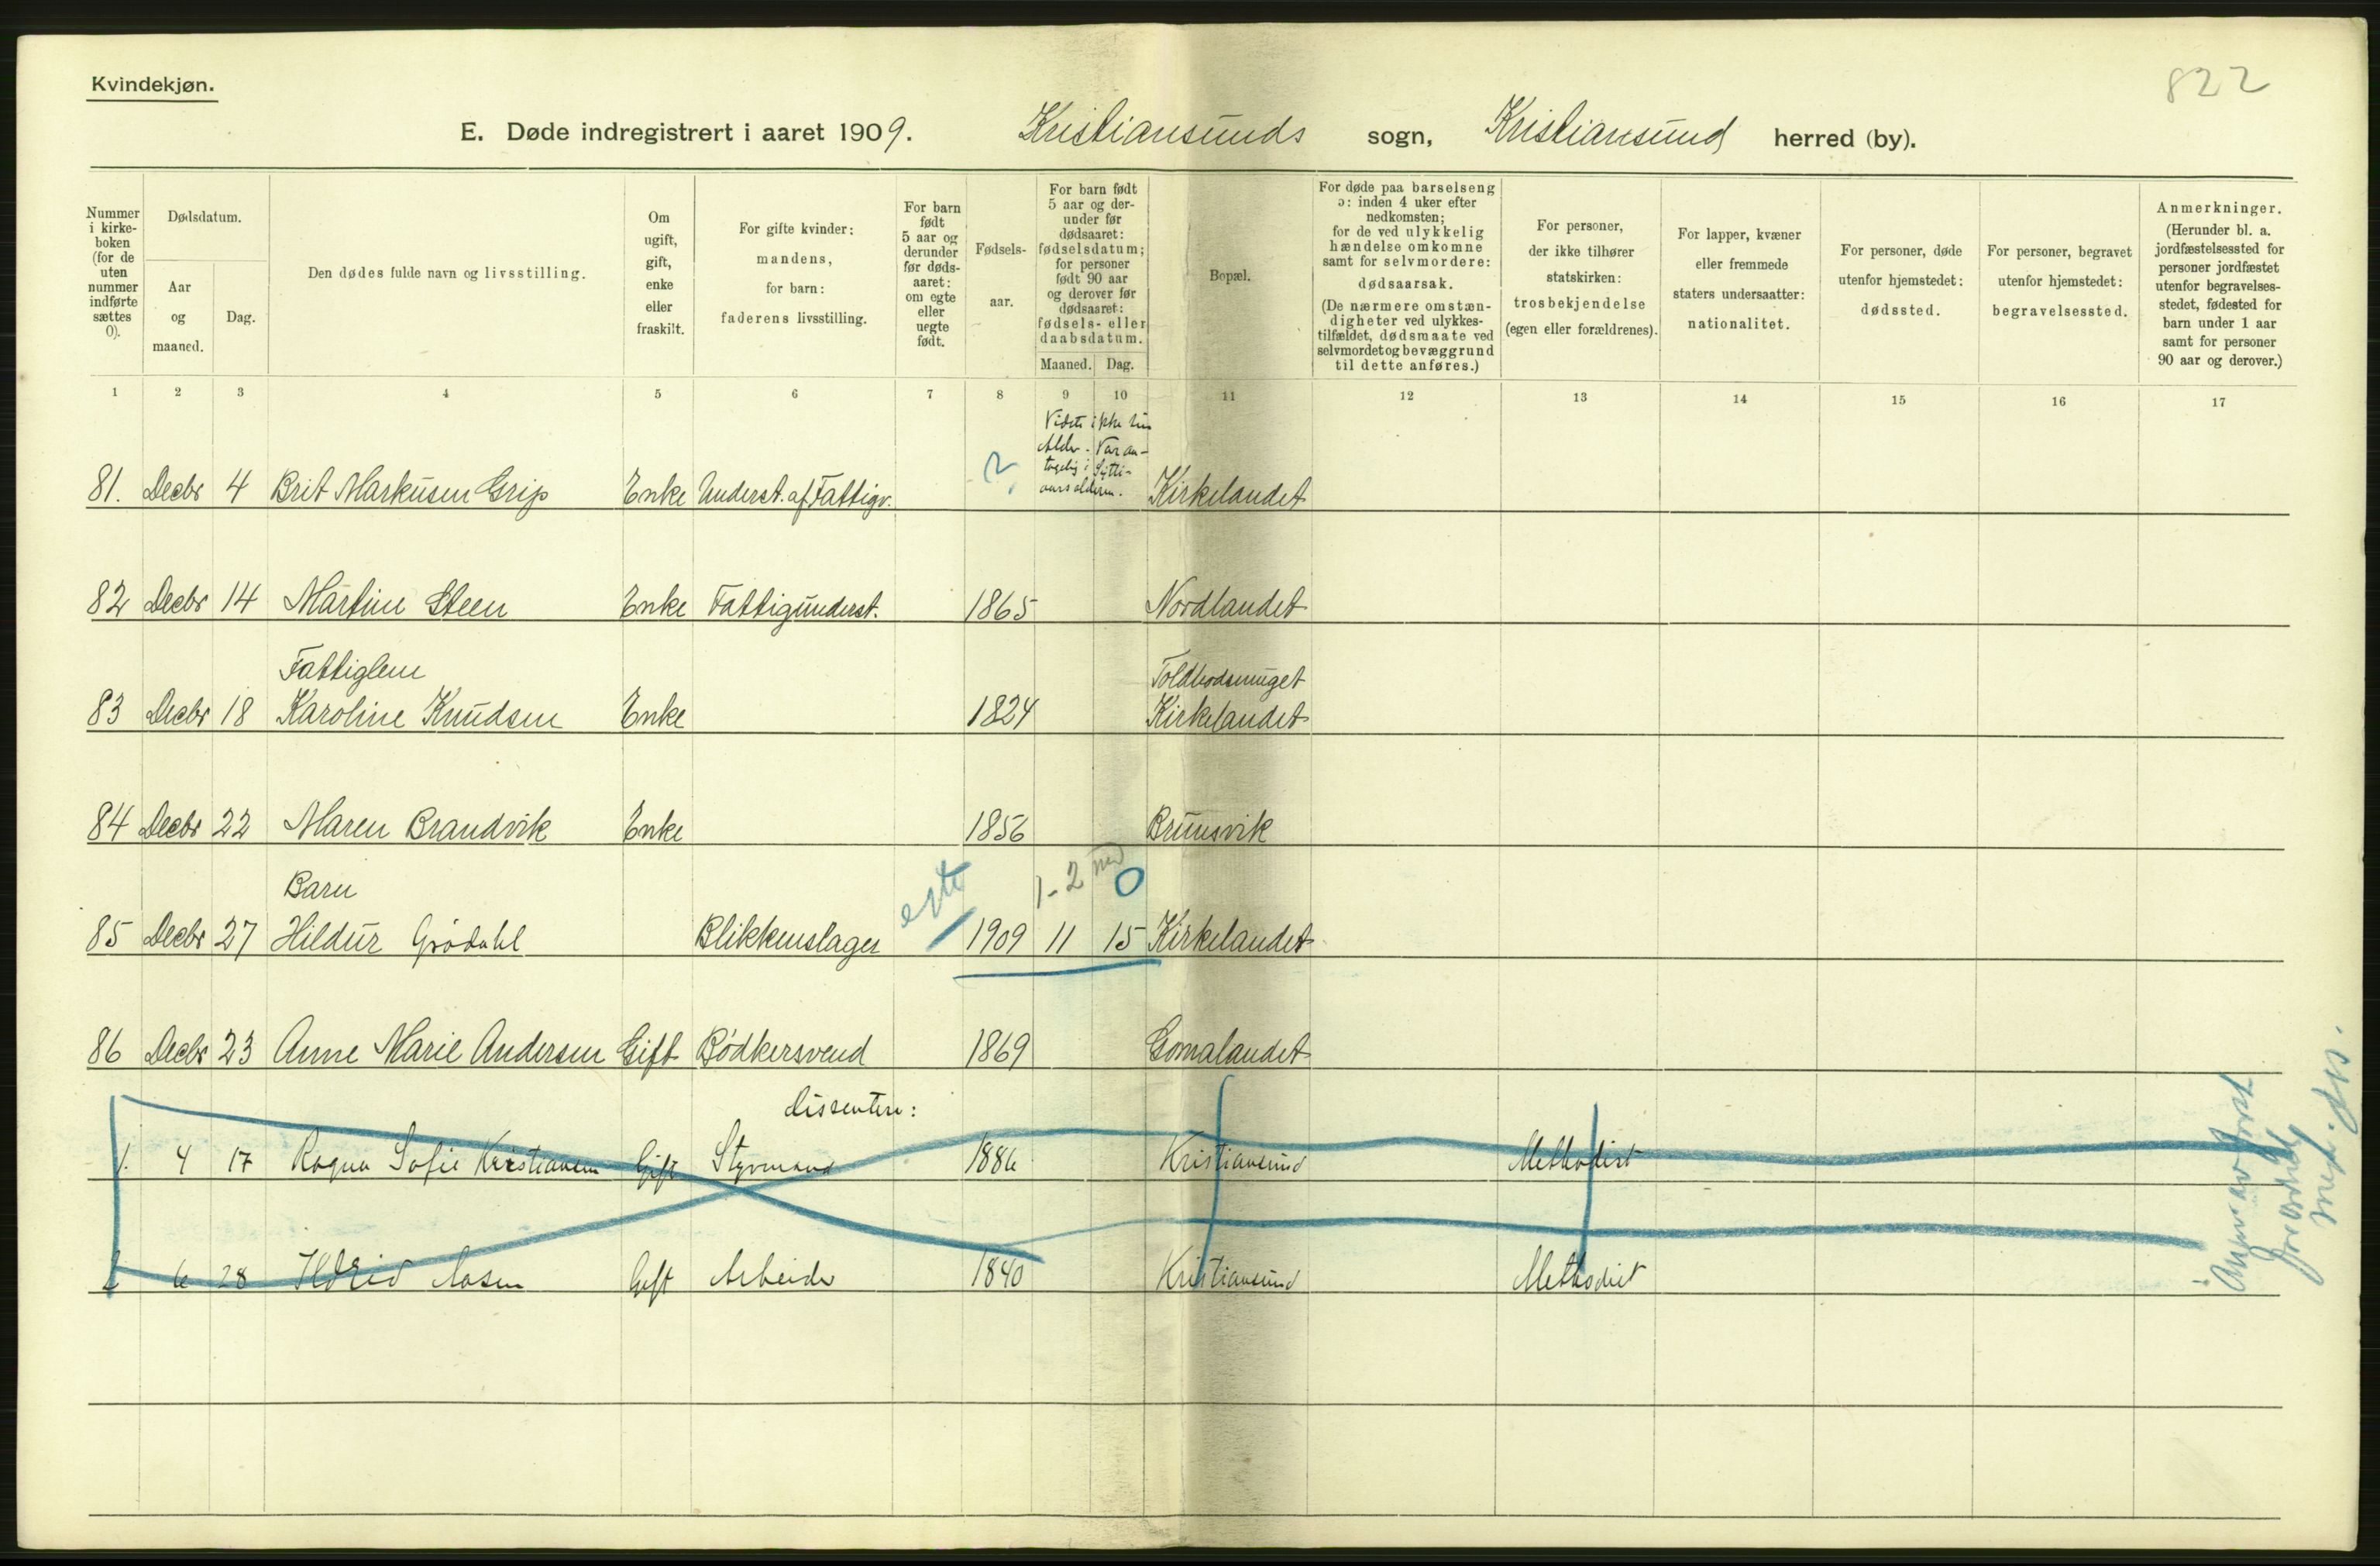 Kvindekjøn.
822
E. Døde indregistrert i aaret 1909. Kristiansunds sogn, Kristiansund herred (by).
Nummer i kirke-boken (for de uten nummer indførte sættes 0).
Dødsdatum.
Aar og maaned.
Dag.
Den dødes fulde navn og livsstilling.
Om ugift, gift, enke eller fraskilt.
For gifte kvinder: mandens, for barn: faderens livsstilling.
For barn født 5 aar og derunder før døds-aaret: om egte eller uegte født.
Fødsels-aar.
For barn født 5 aar og der-under før dødsaaret: fødselsdatum; for personer født 90 aar og derover før dødsaaret: fødsels- eller daabsdatum.
Maaned. Dag.
Bopæl.
For døde paa barselseng ɔ: inden 4 uker efter nedkomsten; for de ved ulykkelig hændelse omkomne samt for selvmordere: dødsaarsak. (De nærmere omstæn-digheter ved ulykkes-tilfældet, dødsmaate ved selvmordet og bevæggrund til dette anføres.)
For personer, der ikke tilhører statskirken: trosbekjendelse (egen eller forældrenes).
For lapper, kvæner eller fremmede staters undersaatter: nationalitet.
For personer, døde utenfor hjemstedet: dødssted.
For personer, begravet utenfor hjemstedet: begravelsessted.
Anmerkninger. (Herunder bl. a. jordfæstelsessted for personer jordfæstet utenfor begravelses-stedet, fødested for barn under 1 aar samt for personer 90 aar og derover.)
1 2 3 4 5 6 7 8 9 10 11 12 13 14 15 16 17
Vidste ikke sin
Alder. Var an-
tagelig i Sytti-
aarsalderen.
81. Decbr 4 Brit Markusen Grip Enke Underst. af Fattigv. ? Kirkelandet
82 Decbr 14 Martine Steen Enke Fattigunderst. 1865 Nordlandet
Fattiglem Toldbodsmuget
83 Decbr 18 Karoline Knudsen Enke 1824 Kirkelandet
84 Decbr 22 Maren Brandvik Enke 1856 Brunsvik
Barn egte 1-2 md 0
85 Decbr 27 Hildur Grødahl Blikkenslager 1909 11 15 Kirkelandet
86 Decbr 23 Anne Marie Andersen Gift Bødkersvend 1869 Gomalandet
Dissentere:
1. 4 17 Ragna Sofie Kristiansen Gift Styrmand 1886 Kristiansund Methodist
2 6 28 Aasen Gift Arbeider 1840 Kristiansund Methodist